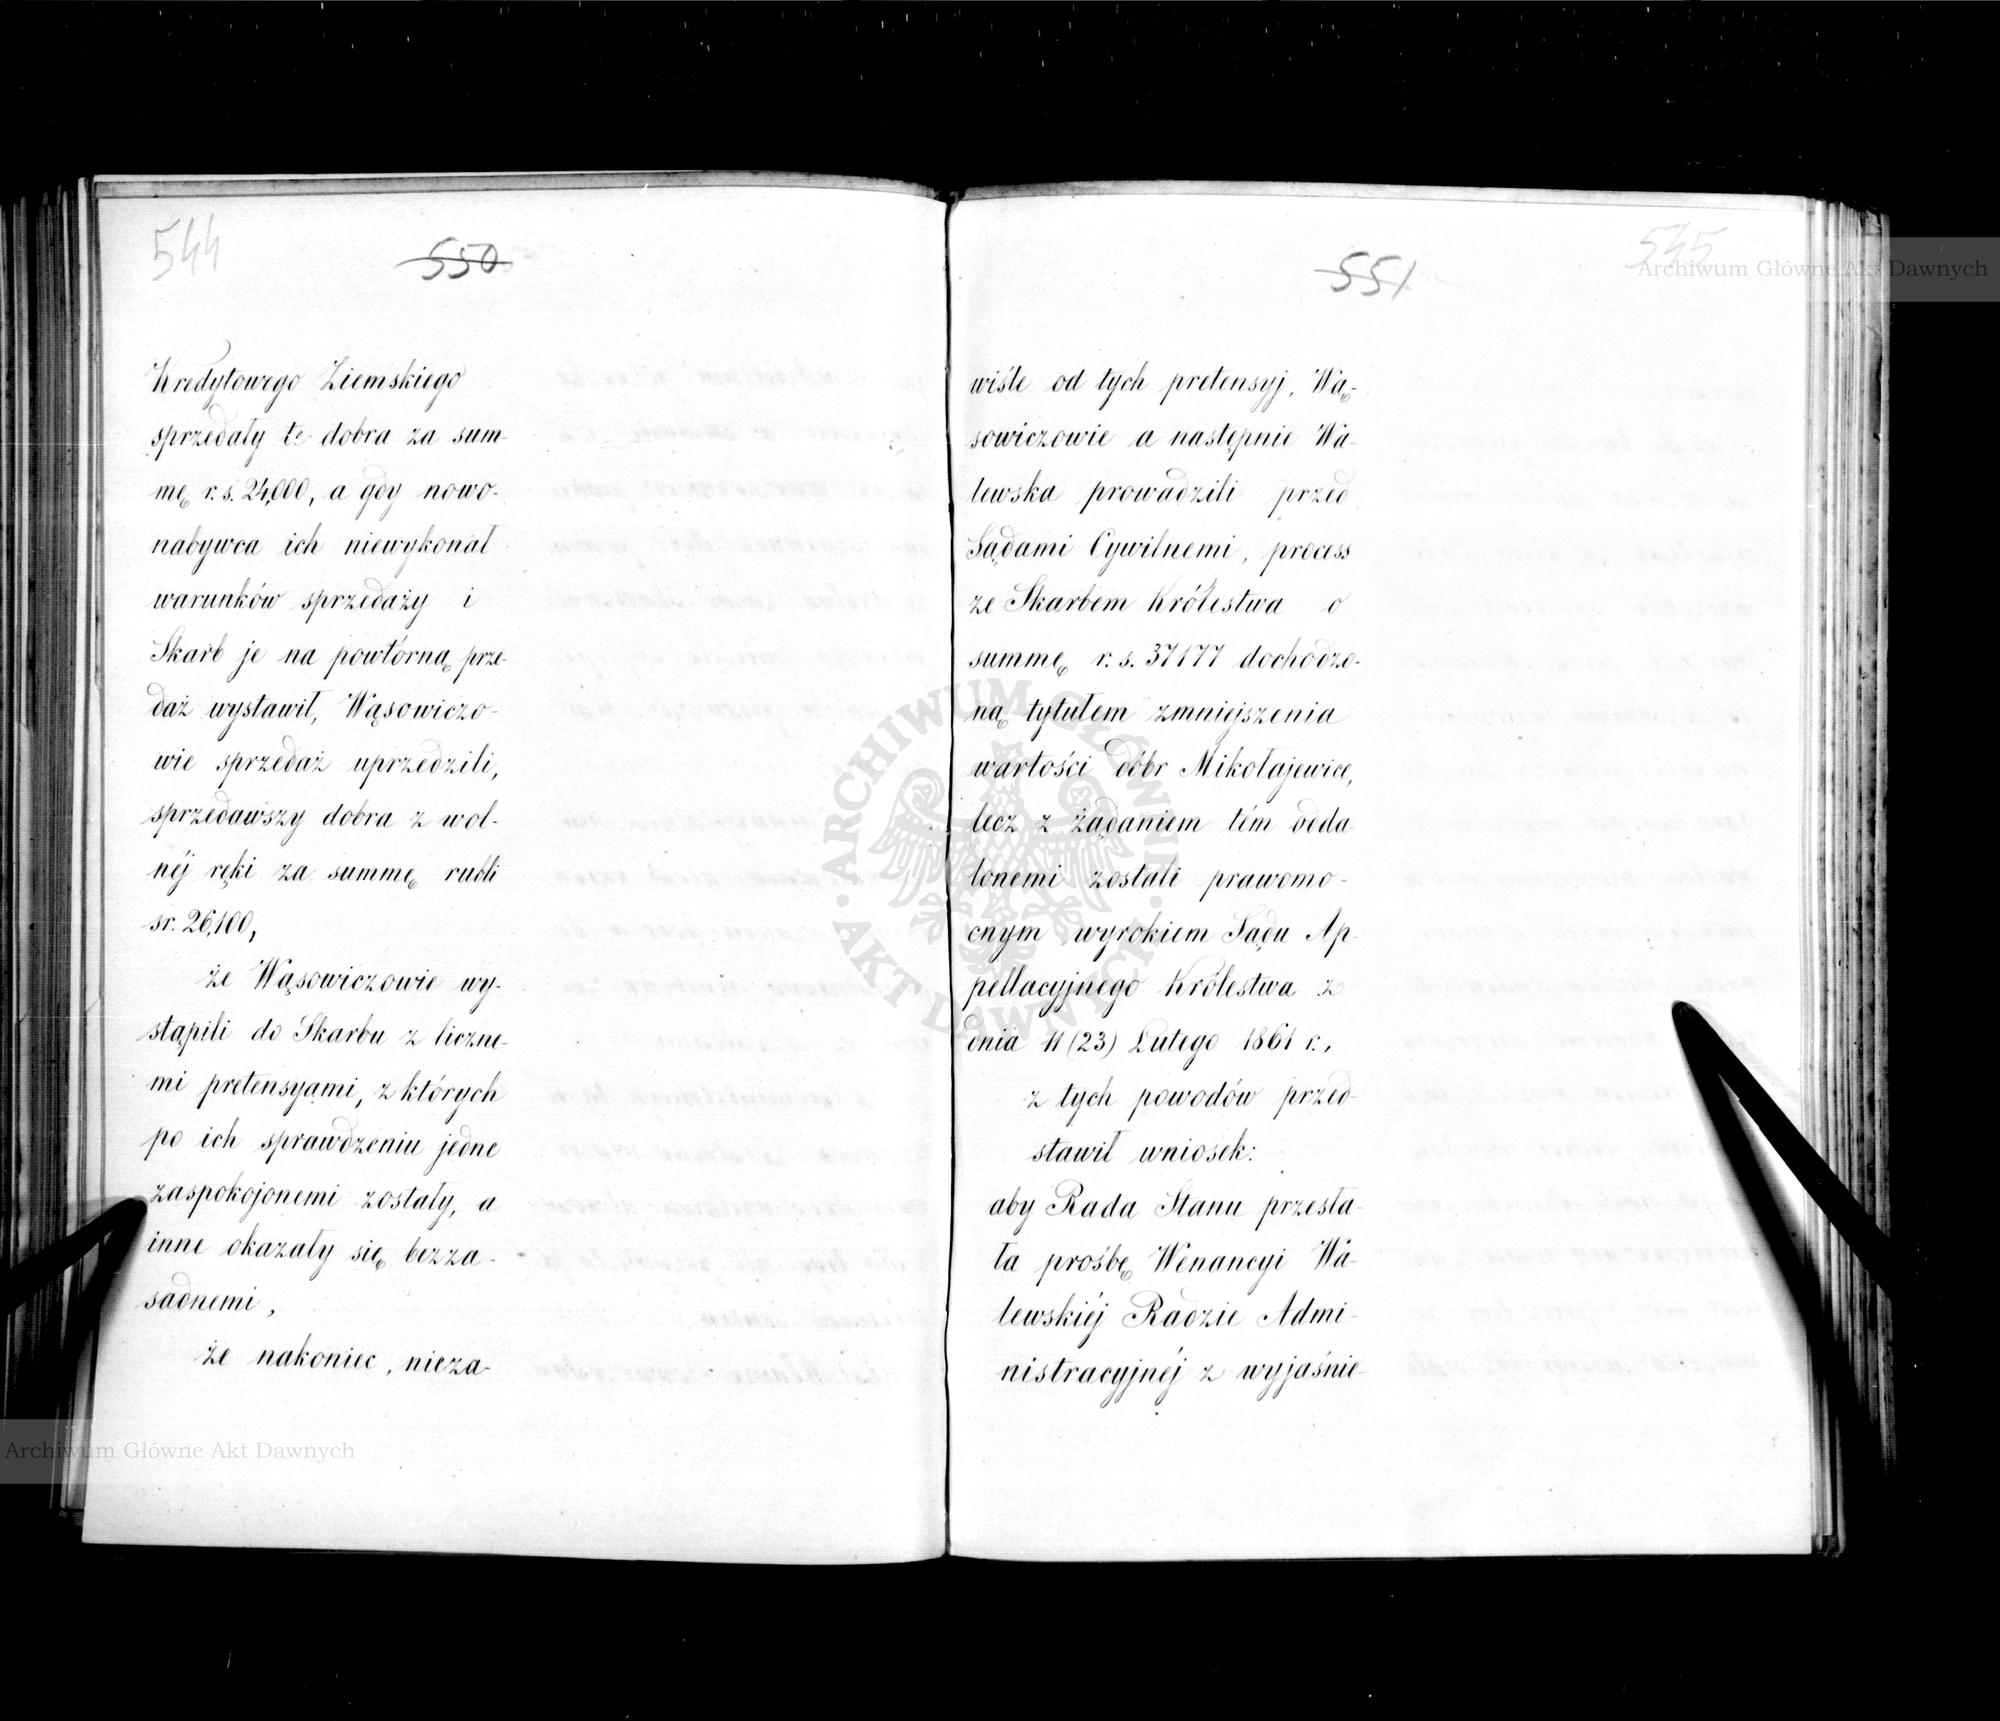 544
550
Kredytowego Ziemskiego
sprzedały te dobra za sum-
mę r. s. 24,000, a gdy nowo-
nabywca ich niewykonał
warunków sprzedaży i
Skarb je na powtórną prze-
daż wystawił, Wąsowiczo-
wie sprzedaż uprzedzili,
sprzedawszy dobra z wol-
néj ręki za summę rubli
sr. 26,100,
że Wąsowiczowie wy-
stąpili do Skarbu z liczne-
mi pretensyami, z których
po ich sprawdzeniu jedne
zaspokojonemi zostały, a
inne okazały się bezza-
sadnemi,
że nakoniec, nieza-
545
551
wiśle od tych pretensyj, Wą-
sowiczowie a następnie Wa-
lewska prowadzili przed
Sądami Cywilnemi, process
ze Skarbem Królestwa o
summę r. s. 37177 dochodzo-
ną tytułem zmniejszenia
wartości dóbr Mikołajewice,
lecz z żądaniem tém odda-
lonemi zostali prawomo-
cnym wyrokiem Sądu Ap-
pellacyjnego Królestwa z
dnia 11 (23) Lutego 1861 r.,
z tych powodów przed-
stawił wniosek:
aby Rada Stanu przesła-
ła prośbę Wenancyi Wa-
lewskiéj Radzie Admi-
nistracyjnéj z wyjaśnie-
Archiwum Główne Akt Dawnych
ARCHIWUM GŁÓWNE AKT DAWNYCH
Archiwum Główne Akt Dawnych